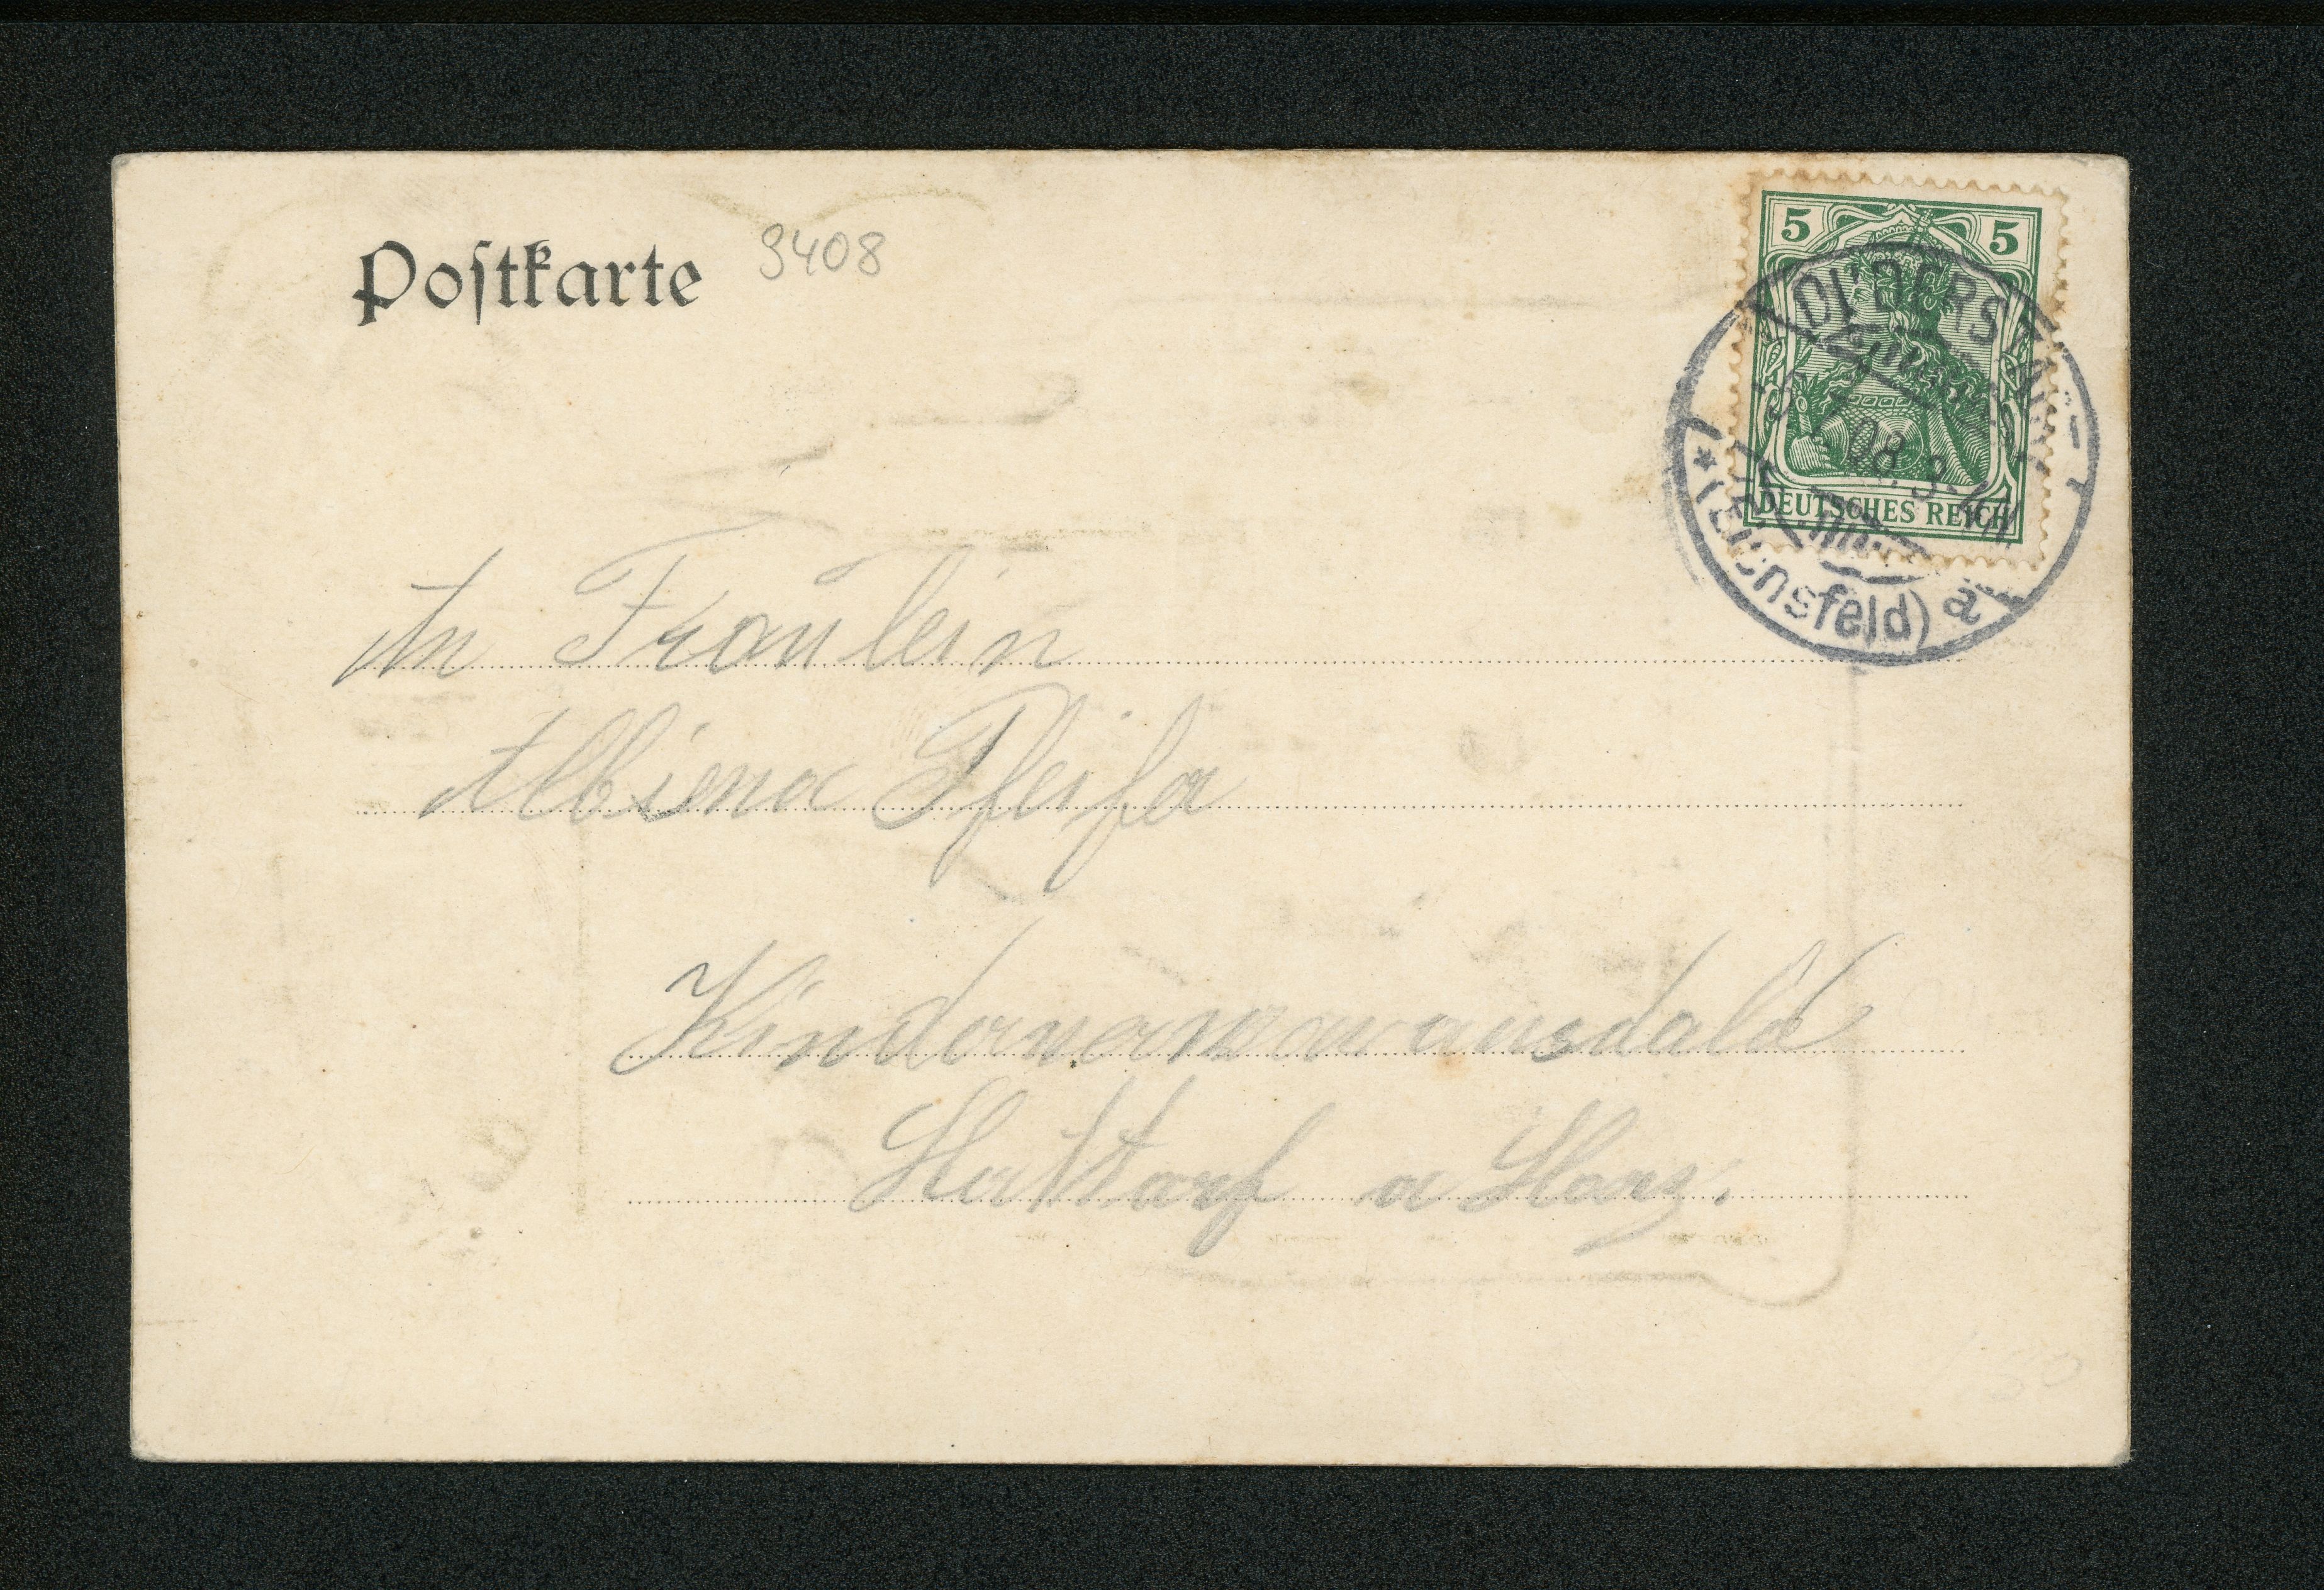 Postkarte 3408
5 5
DEUTSCHES REICH
08. 3
(Eichsfeld) a
An Fräulein
Albiena Pfeifer
Hattorf a Harz.